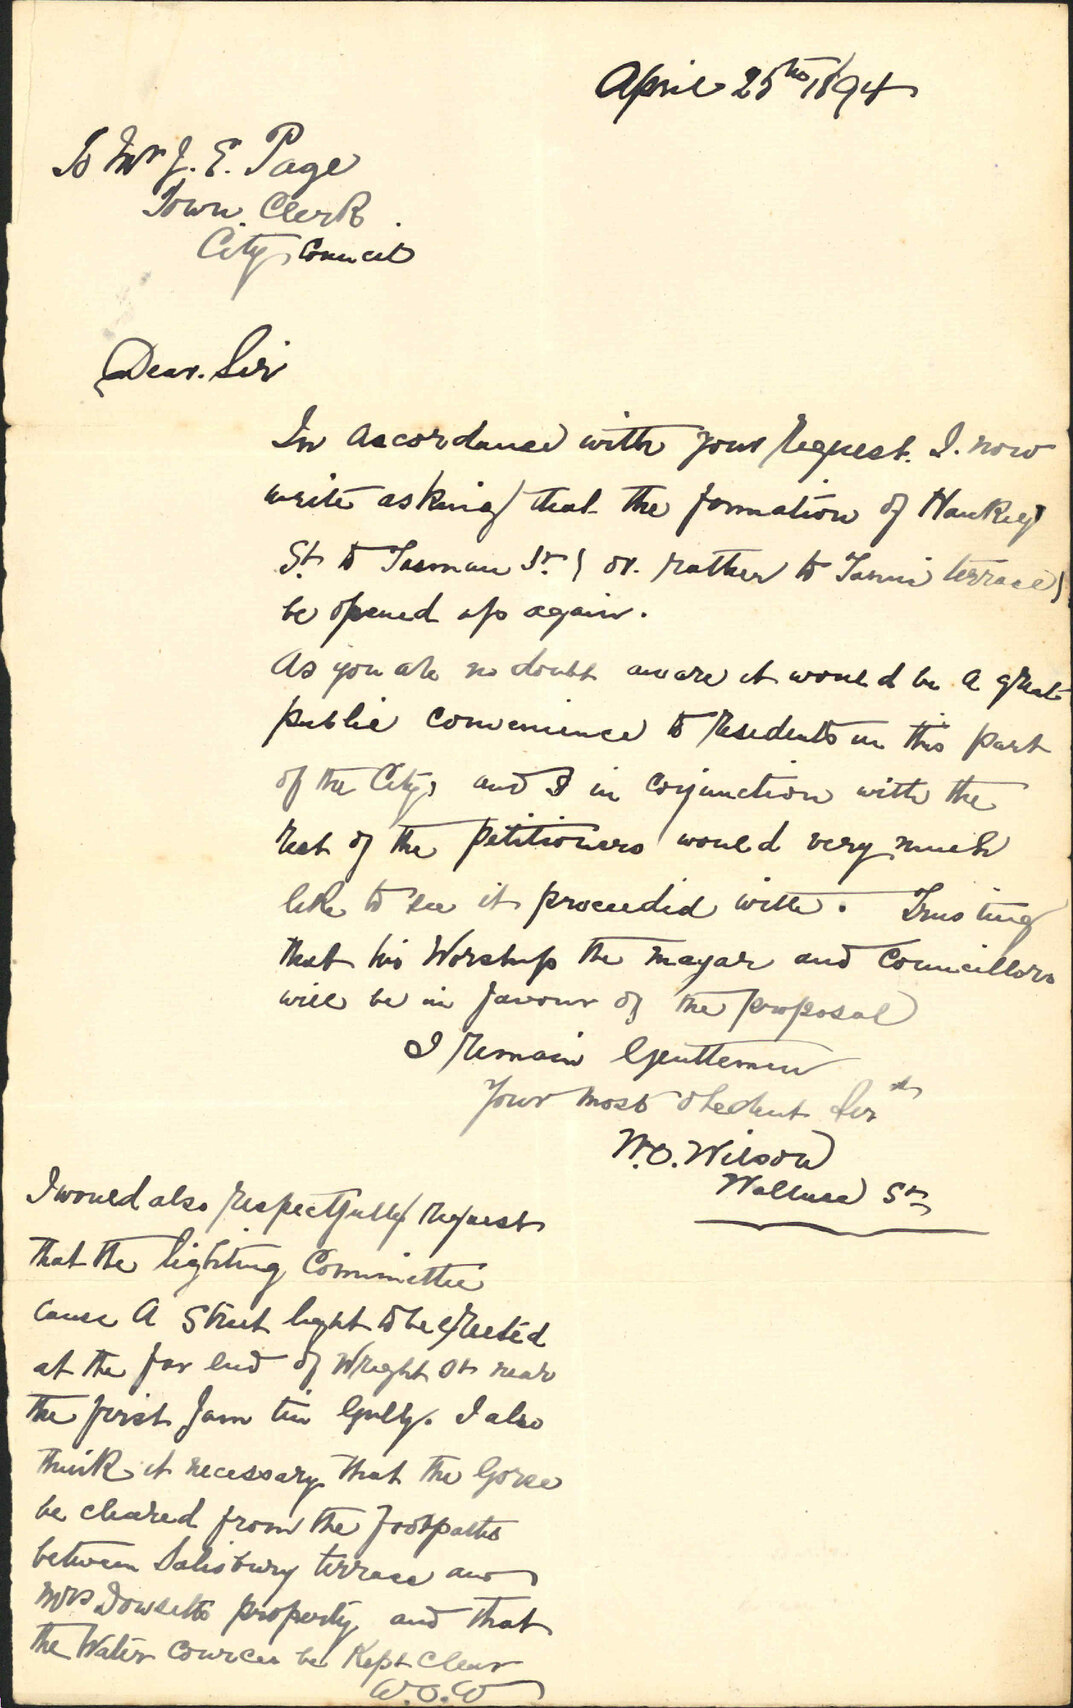 April 25th 1894
To Mr J. E. Page
Town Clerk
City Council
Dear Sir
In accordance with your request. I. now
write asking that the formation of Hankey
St to Tasman St. ( or rather to Tarni terrace)
be opened up again.
As you are no doubt aware it would be a great
public convenience to residents in this part
of the City, and I in conjunction with the
rest of the petitioners would very much
like to see it proceeded with. Trusting
that his Worship the mayor and Councillors
will be in favour of the proposal
I remain Gentlemen
Your most obedient Servt
W.O. Wilson
Wallace St
I would also respectfully request
that the lighting Committee
cause A Street light to be erected
at the far end of Wright St near
the first Jam tin Gully. I also
think it necessary that the Gorse
be cleared from the footpaths
between Salisbury terrace and
Mrs Dowsetts property and that
the Water Cources be Kept clear
W.O.W